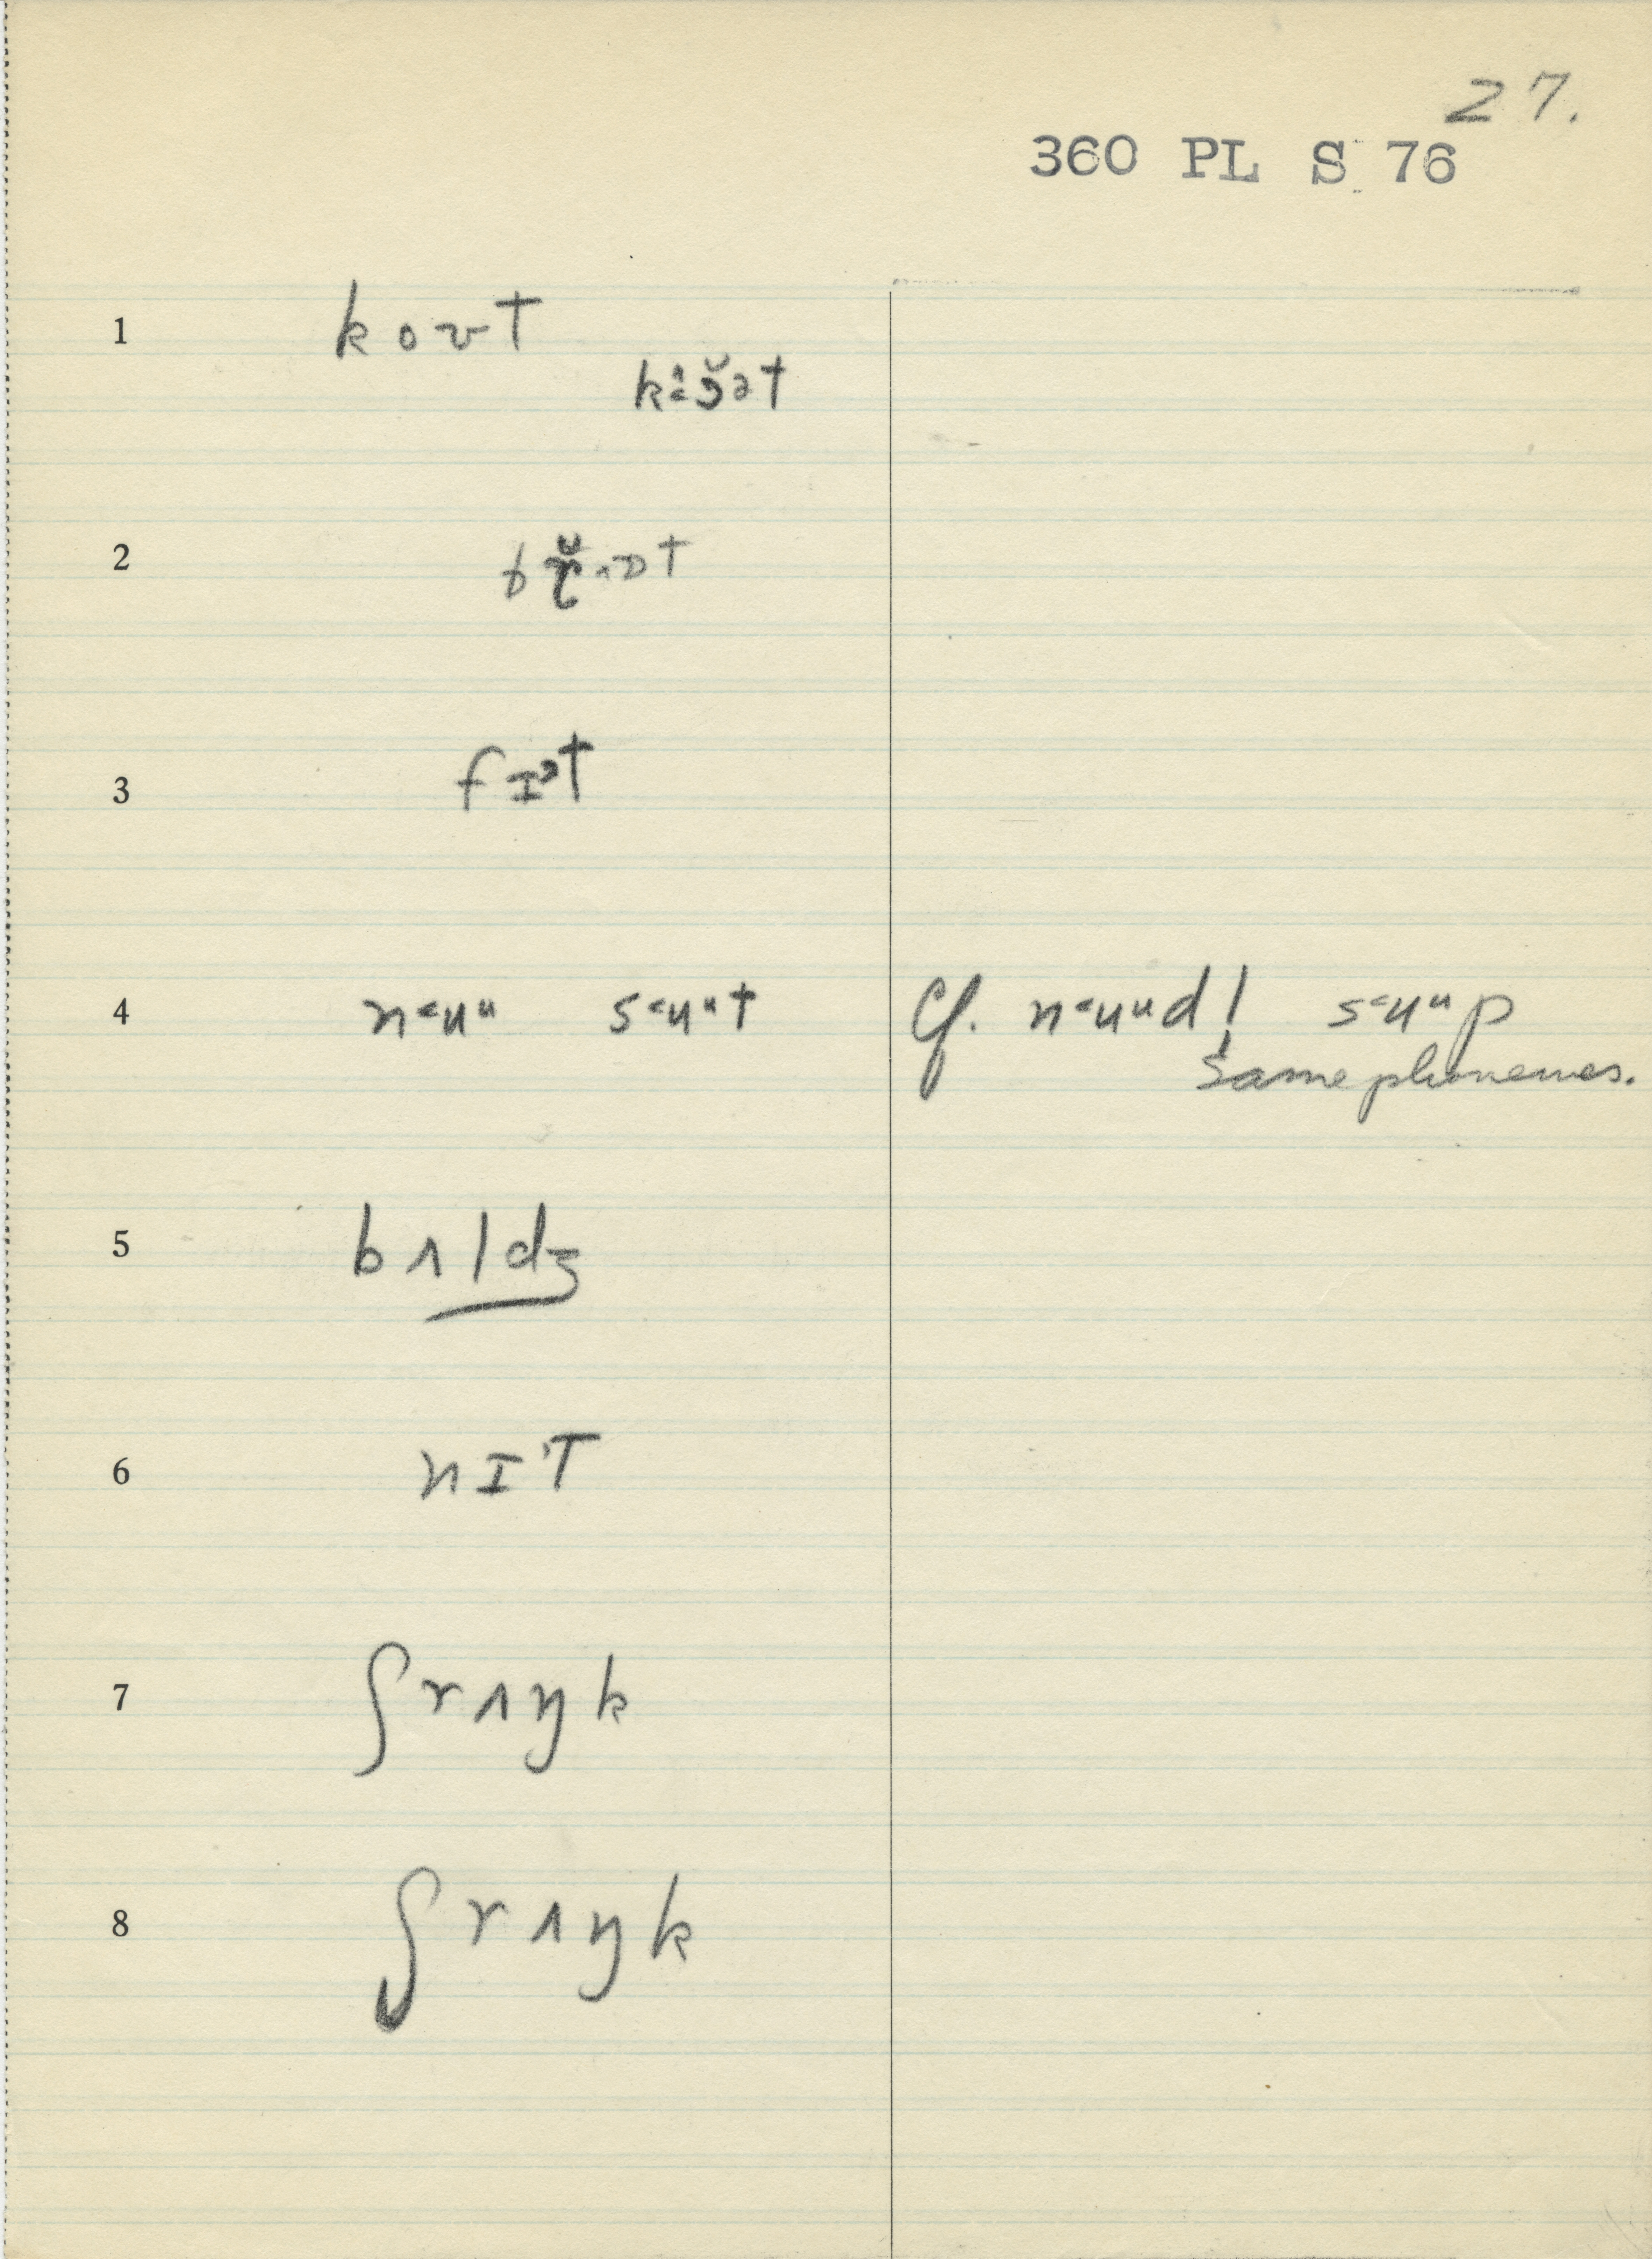 27.
360 PL S 76
1 koʊt
kɜət
2
3 fɪɜt
4 n˂uᵘ s˂uᵘt Cf. n˂uᵘd! s˂uᵘp
Same phonemes.
5 bʌldʒ
6 nɪ't
7 ʃrʌŋk
8 ʃrʌŋk